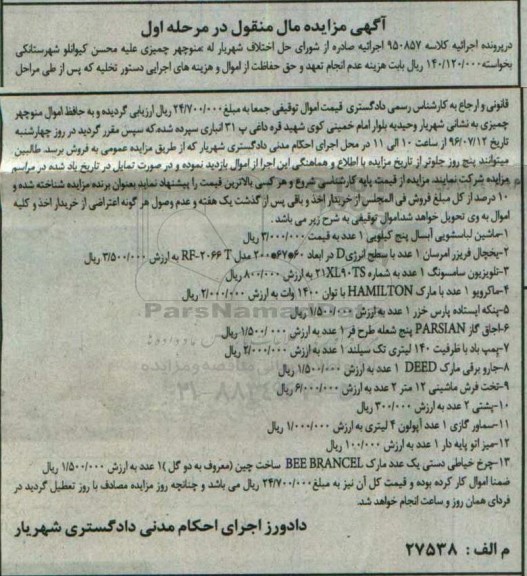 آگهی مزایده مال منقول در مرحله اول
درپرونده اجرائیه کلاسه ۹۵۰۸۵۷ اجرائیه صادره از شورای حل اختلاف شهریار له منوچهر چمیزی علیه محسن کیوانلو شهرستانکی
بخواسته ۱۴۰/۱۲۰/۰۰۰ ریال بابت هزینه عدم انجام تعهد و حق حفاظت از اموال و هزینه های اجرایی دستور تخلیه که پس از طی مراحل
قانونی و ارجاع به کارشناس رسمی دادگستری قیمت اموال توقیفی جمعا به مبلغ ۲۴/۷۰۰/۰۰۰ ریال ارزیابی گردیده و به حافظ اموال منوچهر
چمیزی به نشانی شهریار وحیدیه بلوار امام خمینی کوی شهید قره داغی پ ۳۱ انباری سپرده شده که سپس مقرر گردید در روز چهارشنبه
تاریخ ۹۶/۰۷/۱۲ از ساعت ۱۰ الی ۱۱ در محل اجرای احکام مدنی دادگستری شهریار که از طریق مزایده عمومی به فروش برسد. طالبین
میتوانند پنج روز جلوتر از تاریخ مزایده با اطلاع و هماهنگی این اجرا از اموال بازدید نموده و در صورت تمایل در تاریخ یاد شده در مراسم
مزایده شرکت نمایند. مزایده از قیمت پایه کارشناسی شروع و هر کسی بالاترین قیمت را پیشنهاد نماید بعنوان برنده مزایده شناخته شده و
۱۰ درصد از کل مبلغ فروش فی المجلس از خریدار اخذ و باقی پس از گذشت یک هفته و عدم وصول هر گونه اعتراضی از خریدار اخذ و کلیه
اموال به وی تحویل خواهد شد اموال توقیفی به شرح زیر می باشد.
۱-ماشین لباسشویی آبسال پنج کیلویی ۱ عدد به قیمت ۳/۰۰۰/۰۰۰ ریال
۲-یخچال فریزر امرسان ۱ عدد با سطح انرژی D در ابعاد ۶۰*۶۷*۲۰۰ مدل RF-۲۰۶۶ T به ارزش ۳/۵۰۰/۰۰۰ ریال
۳-تلویزیون سامسونگ ۱ عدد به شماره ۲۱XL۹۰TS به ارزش ۸۰۰/۰۰۰ ریال
۴-ماکرویو ۱ عدد با مارک HAMILTON با توان ۱۴۰۰ وات به ارزش ۲/۰۰۰/۰۰۰ ریال
۵-پنکه ایستاده پارس خزر ۱ عدد به ارزش ۱/۵۰۰/۰۰۰ ریال
۶-اجاق گاز PARSIAN پنج شعله طرح فر ۱ عدد به ارزش ۱/۵۰۰/۰۰۰ ریال
۷-پمپ باد با ظرفیت ۱۴۰ لیتری تک سیلند ۱ عدد به ارزش ۲/۰۰۰/۰۰۰ ریال
۸-جارو برقی مارک DEED ۱ عدد به ارزش ۱/۵۰۰/۰۰۰ ریال
۹-تخت فرش ماشینی ۱۲ متر ۲ عدد به ارزش ۶/۰۰۰/۰۰۰ ریال
۱۰-پشتی ۲ عدد به ارزش ۳۰۰/۰۰۰ ریال
۱۱-سماور گازی ۱ عدد آپولون ۴ لیتری به ارزش ۱/۰۰۰/۰۰۰ ریال
۱۲-میز اتو پایه دار ۱ عدد به ارزش ۱۰۰/۰۰۰ ریال
۱۳-چرخ خیاطی دستی یک عدد مارک BEE BRANCEL ساخت چین (معروف به دو گل )۱ عدد به ارزش ۱/۵۰۰/۰۰۰ ریال
ضمنا اموال کار کرده بوده و قیمت کل آن نیز به مبلغ ۲۴/۷۰۰/۰۰۰ ریال می باشد و چنانچه روز مزایده مصادف با روز تعطیل گردید در
فردای همان روز و ساعت انجام خواهد شد.
دادورز اجرای احکام مدنی دادگستری شهریار
م الف : ۲۷۵۳۸